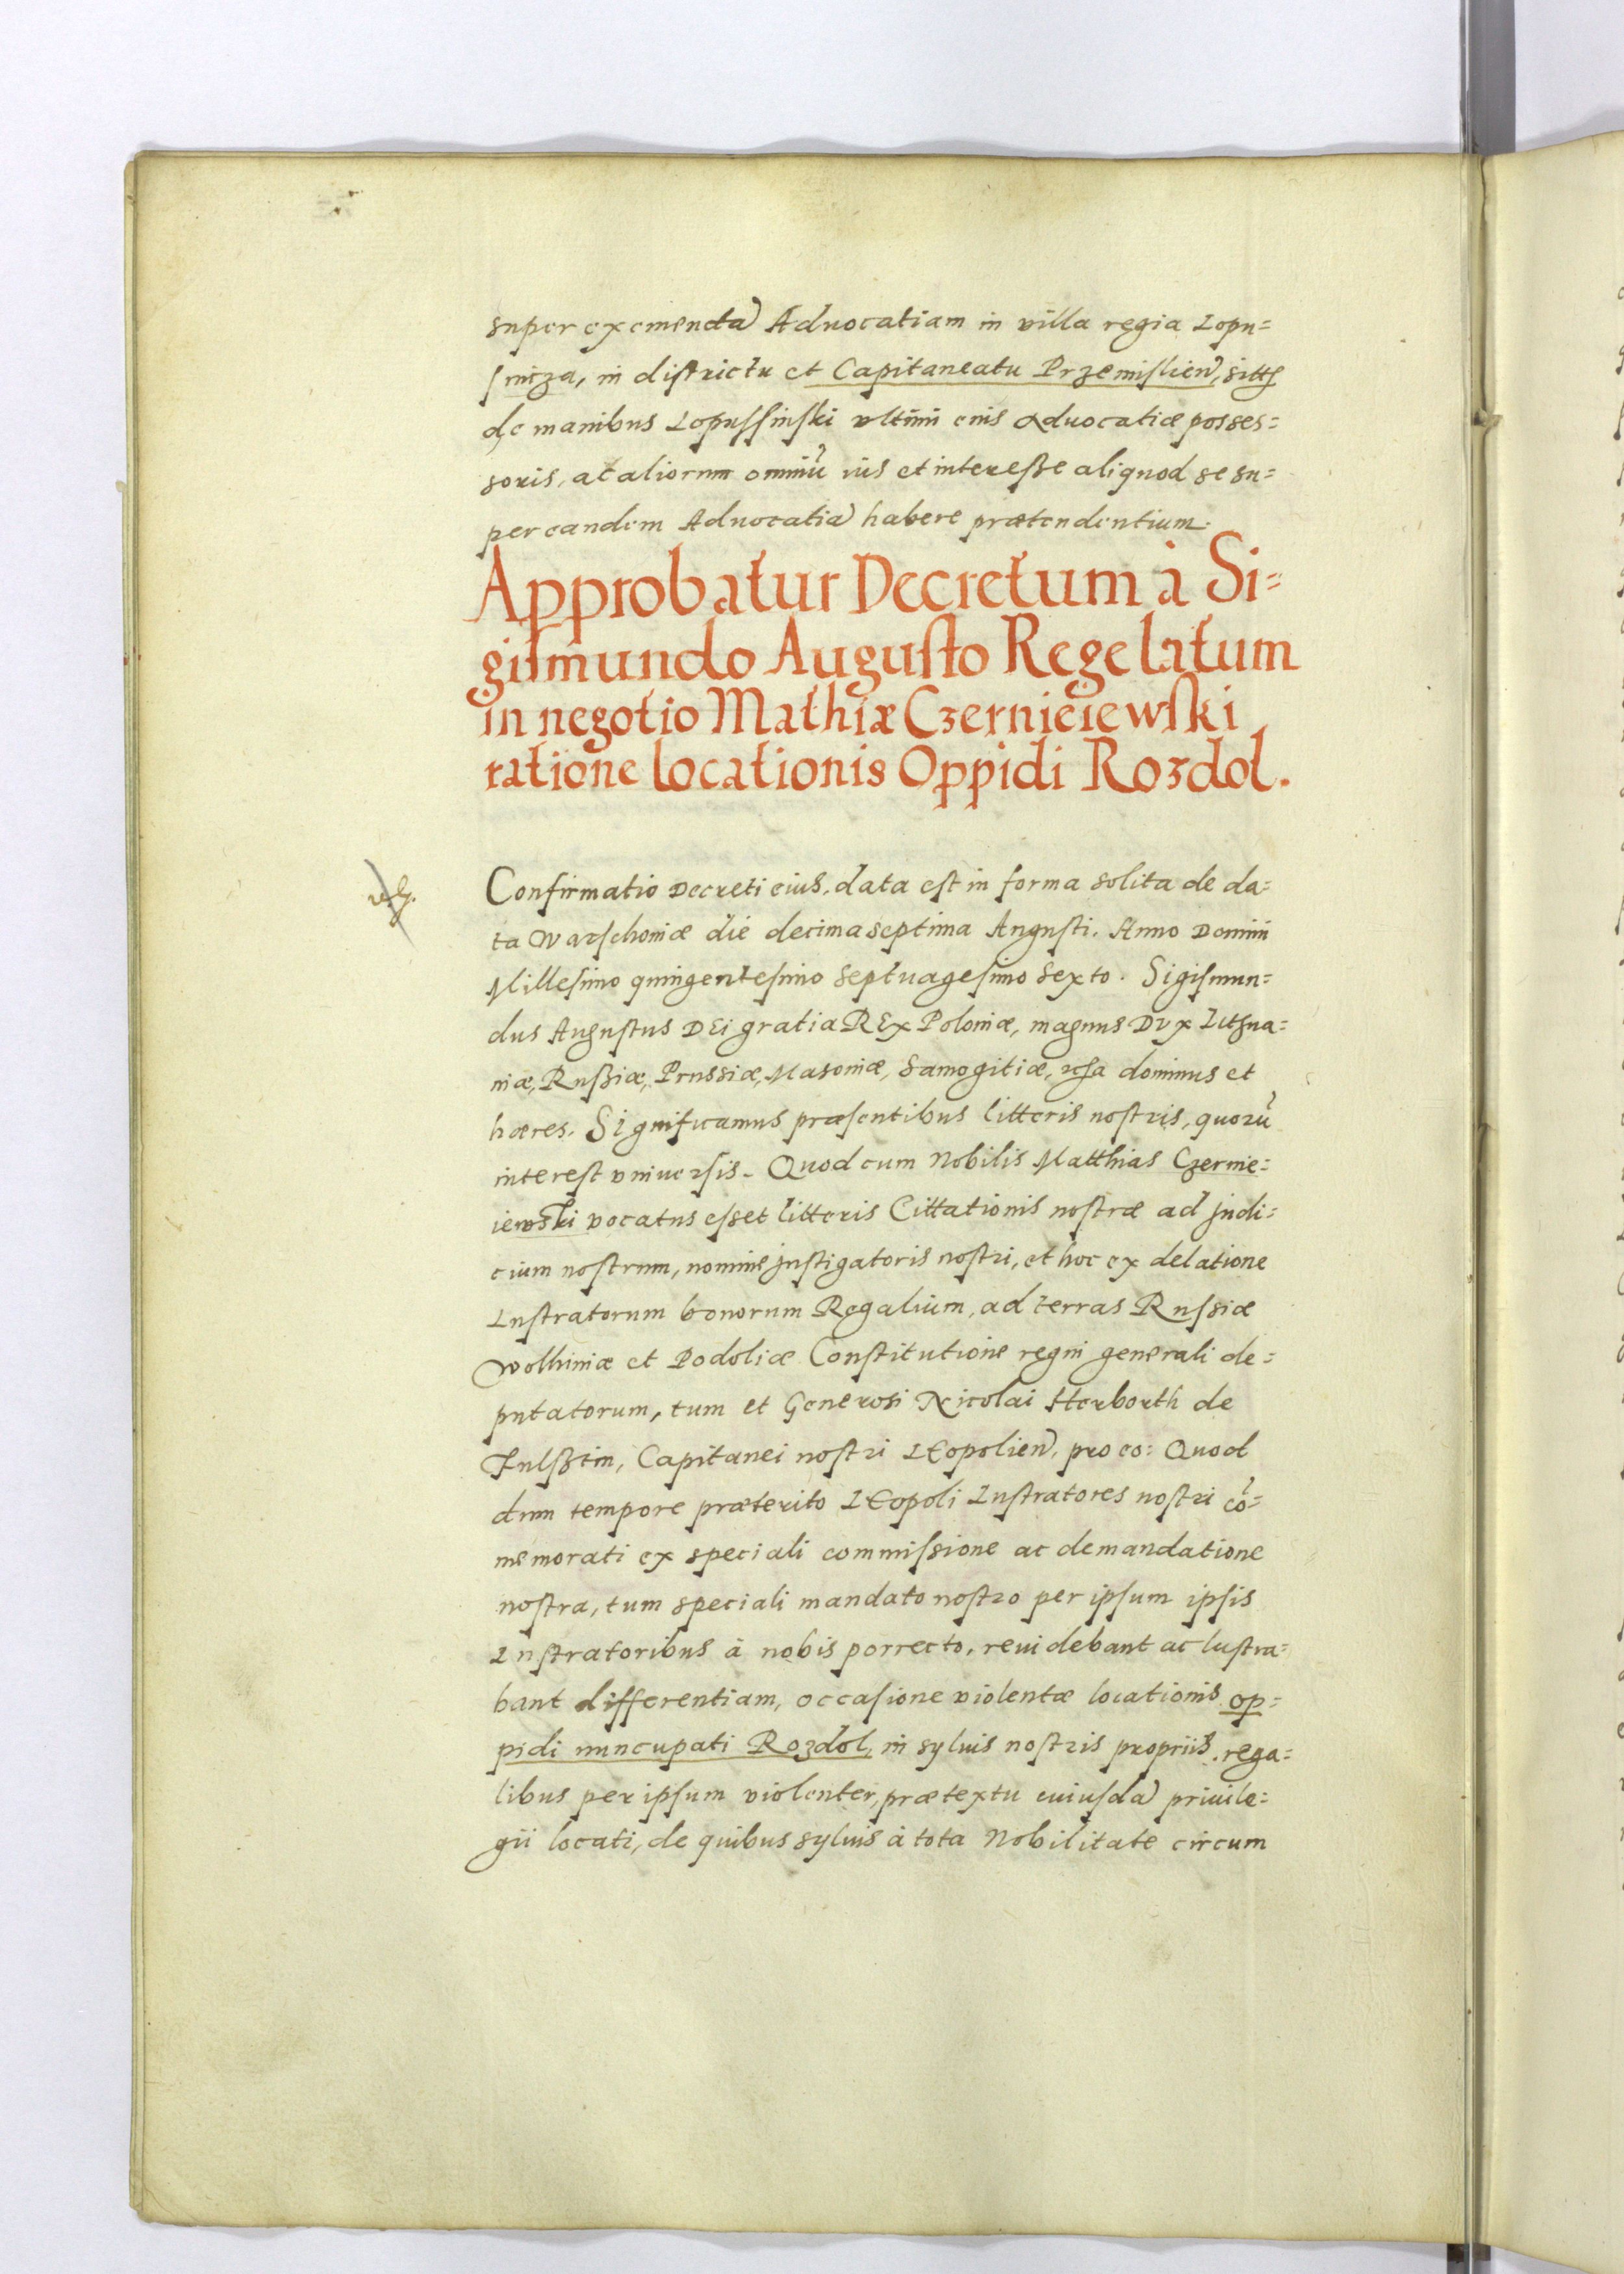 super exemenda Aduocatiam in villa regia Lopu=
sniza, in districtu et Capitaneatu Przemislien, sitte
de manibus Lopussinski vltimi eius aduocatiæ posses=
soris, ac aliorum omniũ ius et interesse aliquod se su=
per eandem Aduocatia habere prætendentium.
Approbatur Decretum à Si=
gismundo Augusto Rege latum
in negotio Mathiæ Czernieiewski
ratione locationis Oppidi Rozdol.
Confirmatio Decreti eius, data est in forma solita de da=
ta Warschouiæ die decima septima Augusti. Anno Domini
Millesimo quingentesimo Septuagesimo Sexto. Sigismun=
dus Augustus DEi gratia REx Poloniæ, magnus Dvx Lithua=
niæ, Russiæ, Prussiæ, Masouiæ, Samogitiæ, dominus et
hæres. Significamus præsentibus litteris nostris, quorũ
interest vniuersis. Quod cum Nobilis Matthias Czernie=
iewski vocatus esset litteris Cittationis nostræ ad judi=
cium nostrum, nomine jnstigatoris nostri, et hoc ex delatione
Lustratorum bonorum Regalium, ad terras Russiæ
Wolhiniæ et Podoliæ Constitutione regni generali de=
putatorum, tum et Generosi Nicolai Herborth de
Fulsztin, Capitanei nostri LEopolien, pro eo: Quod
dum tempore præterito LEopoli Lustratores nostri cõ=
memorati ex speciali commissione ac demandatione
nostra, tum speciali mandato nostro per ipsum ipsis
Lustratoribus à nobis porrecto, reuidebant ac lustra=
bant differentiam, occasione violentæ locationis op=
pidi nuncupati Rozdol, in syluis nostris propriis, rega=
libus per ipsum violenter, prætextu cuiusda priuile=
gii locati, de quibus syluis à tota Nobilitate circum